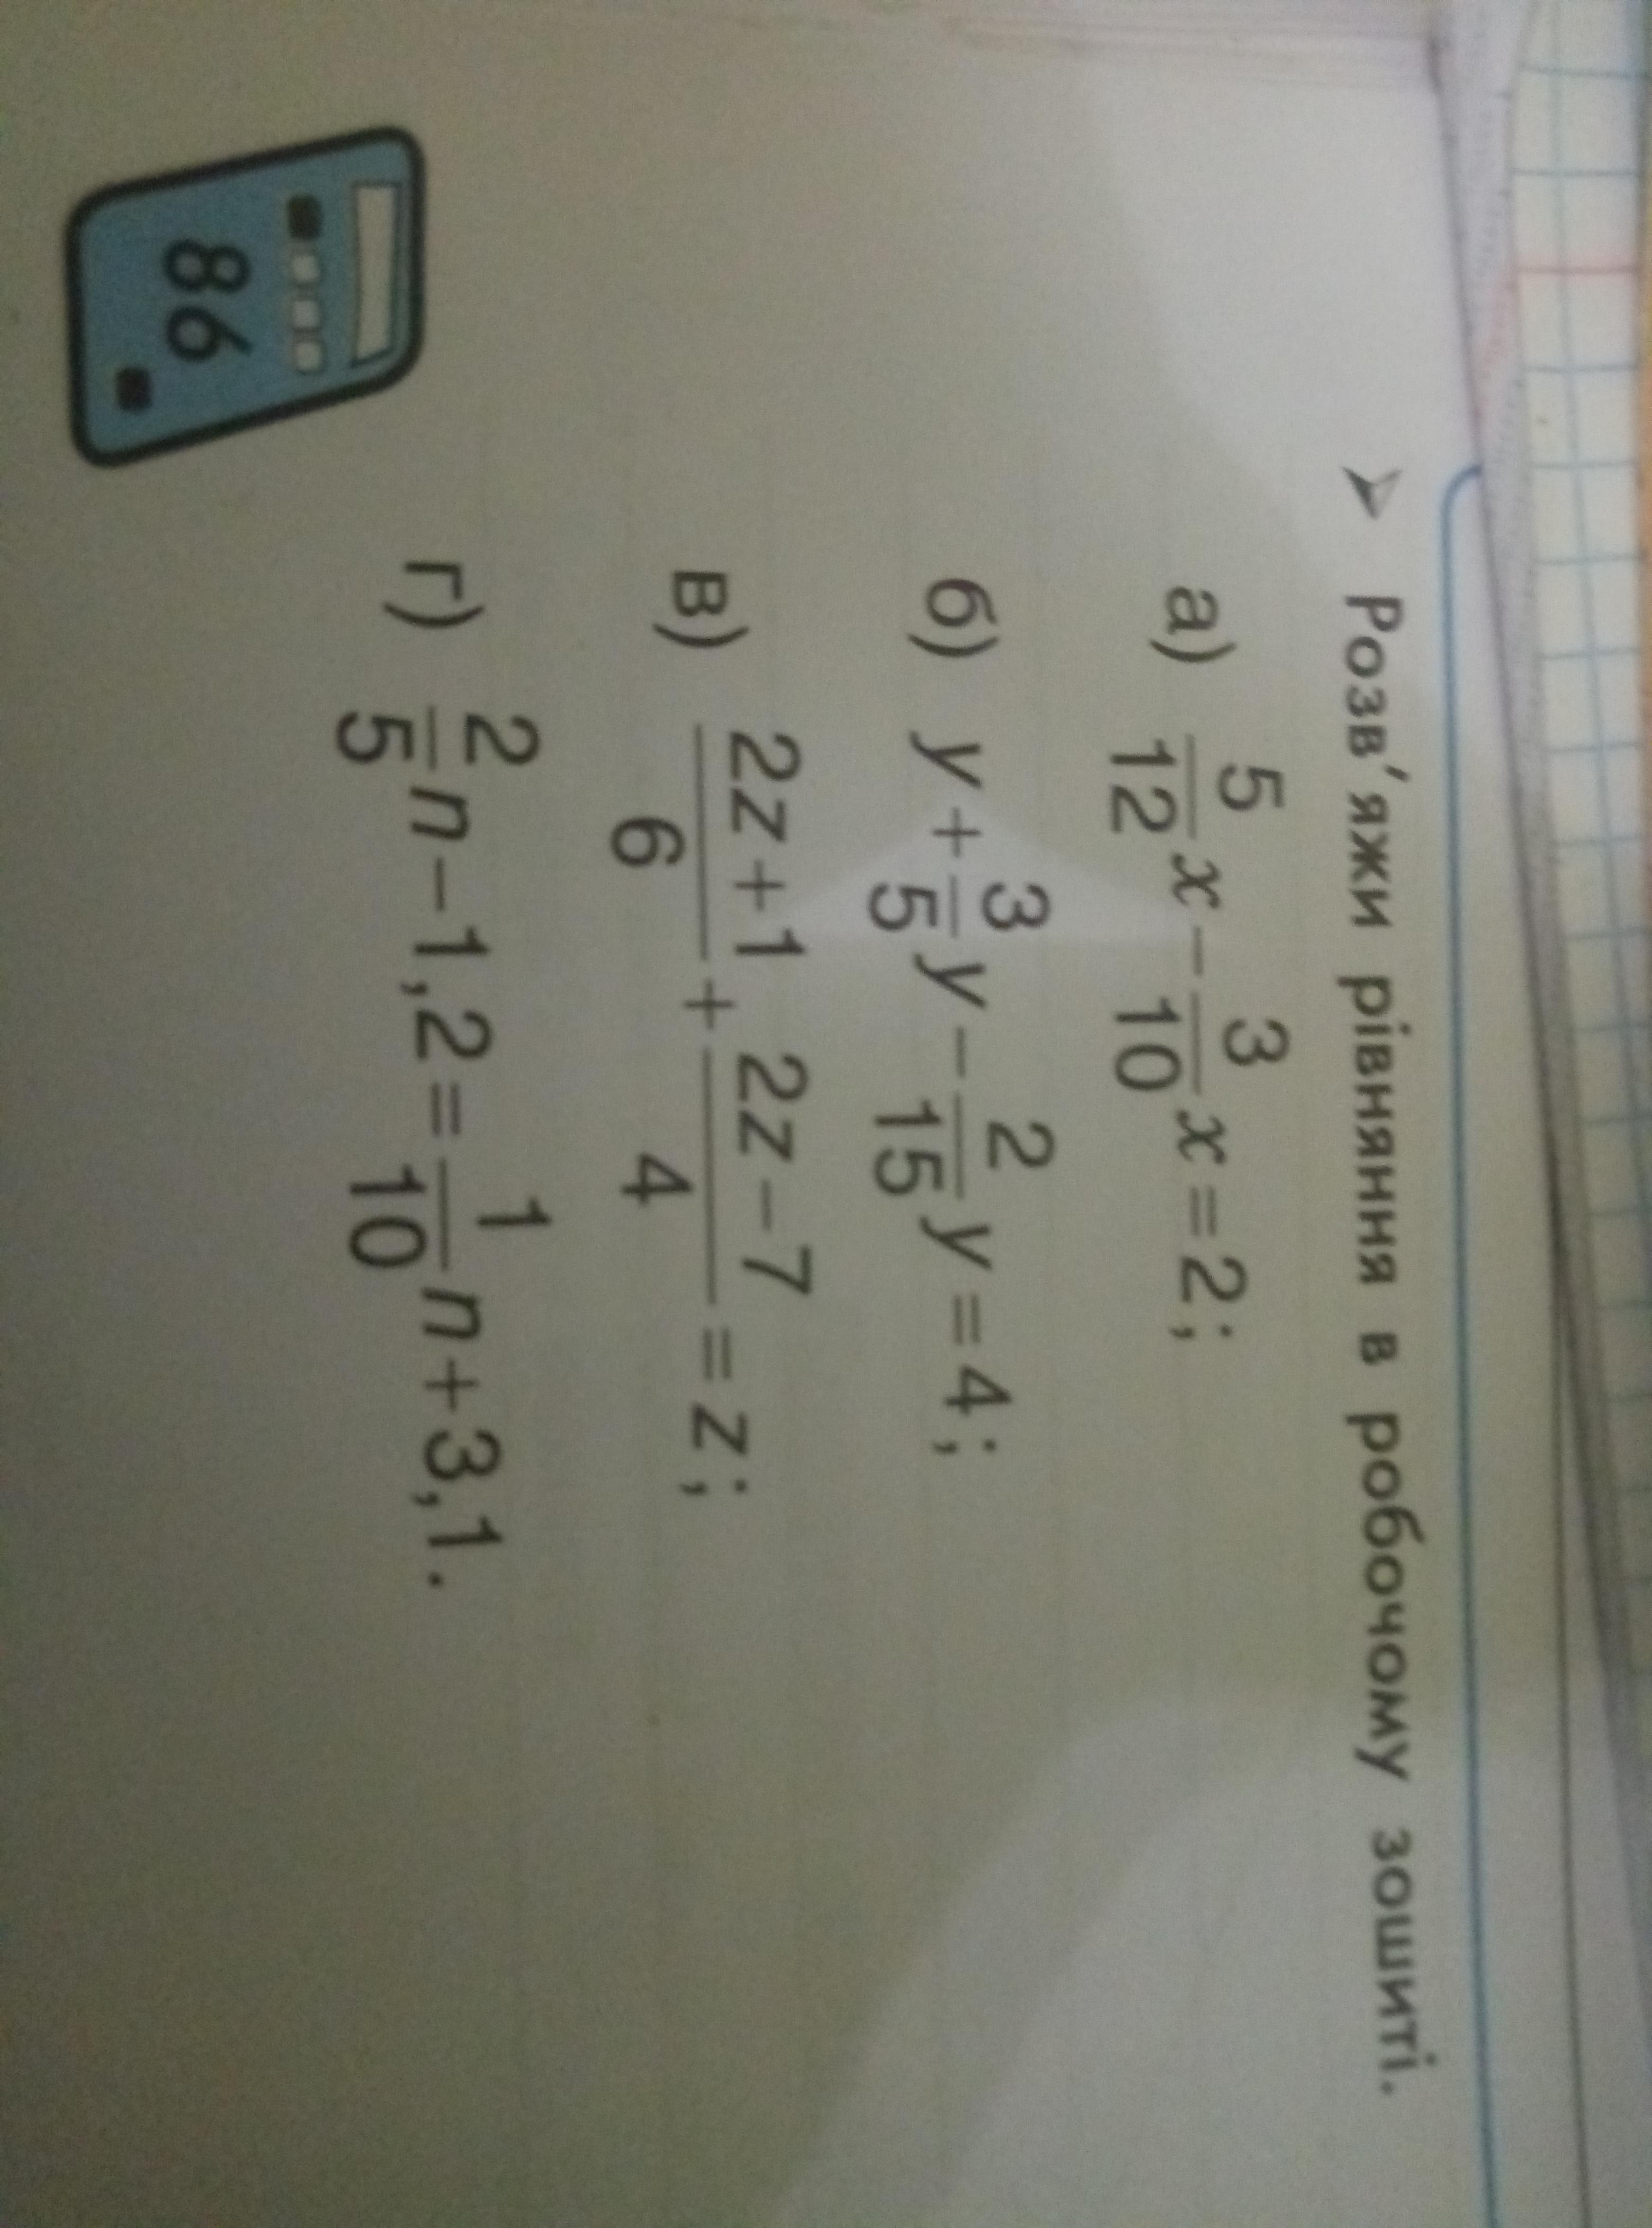 ➤ Розв'яжи рівняння в робочому зошиті.
а) 5/12 x − 3/10 x = 2;
б) y + 3/5 y − 2/15 y = 4;
в) (2z + 1)/6 + (2z − 7)/4 = z;
г) 2/5 n − 1,2 = 1/10 n + 3,1.
86